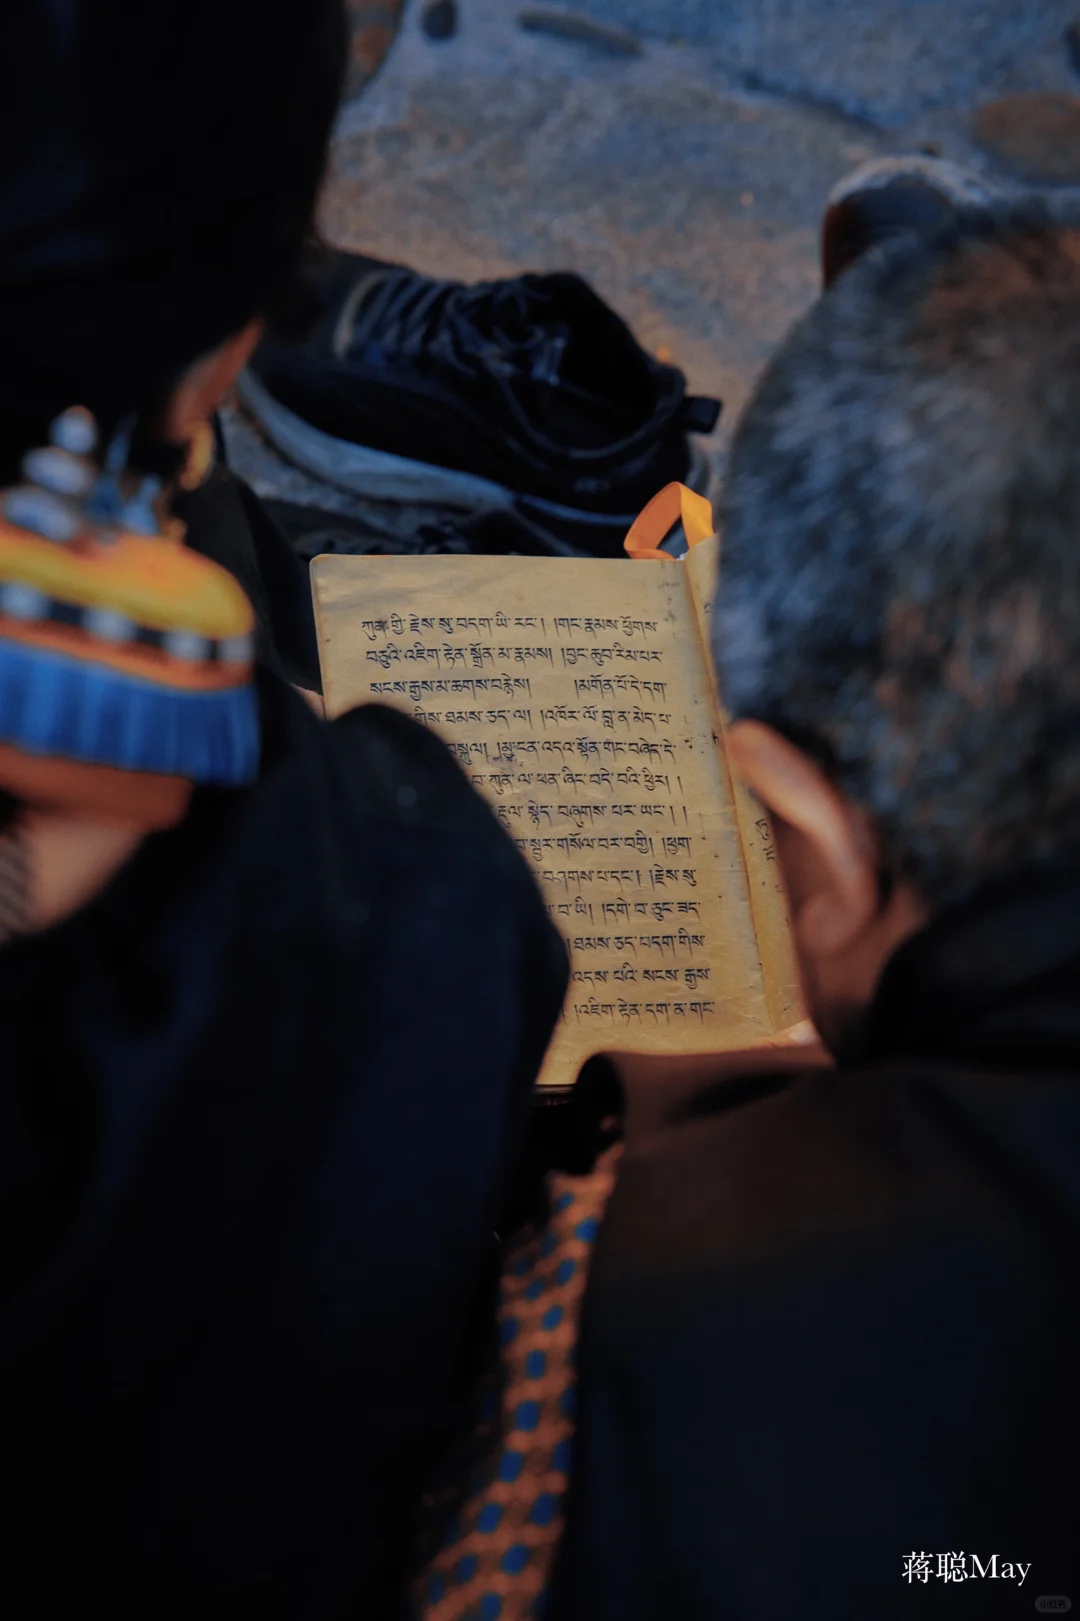 ཀུན་གྱི་རྗེས་སུ་བདག་ཡི་རང་། །གང་རྣམས་ཕྱོགས་
བཅུའི་འཇིག་རྟེན་སྒྲོན་མ་རྣམས། །བྱང་ཆུབ་རིམ་པར་
སངས་རྒྱས་མ་ཆགས་བརྙེས། །མགོན་པོ་དེ་དག་
གིས་ཐམས་ཅད་ལ། །འཁོར་ལོ་བླ་ན་མེད་པ་
བསྐུལ། །མྱ་ངན་འདའ་སྟོན་གང་བཞེད་དེ་
བ་ཀུན་ལ་ཕན་ཞིང་བདེ་བའི་ཕྱིར། །
རྡུལ་སྙེད་བཞུགས་པར་ཡང་། །
སྦྱར་གསོལ་བར་བགྱི། །ཕྱག་
བཤགས་པ་དང་། །རྗེས་སུ་
བ་ཡི། །དགེ་བ་ཅུང་ཟད་
ཐམས་ཅད་བདག་གིས་
འདས་པའི་སངས་རྒྱས་
།འཇིག་རྟེན་དག་ན་གང་
蒋聪May
小红书